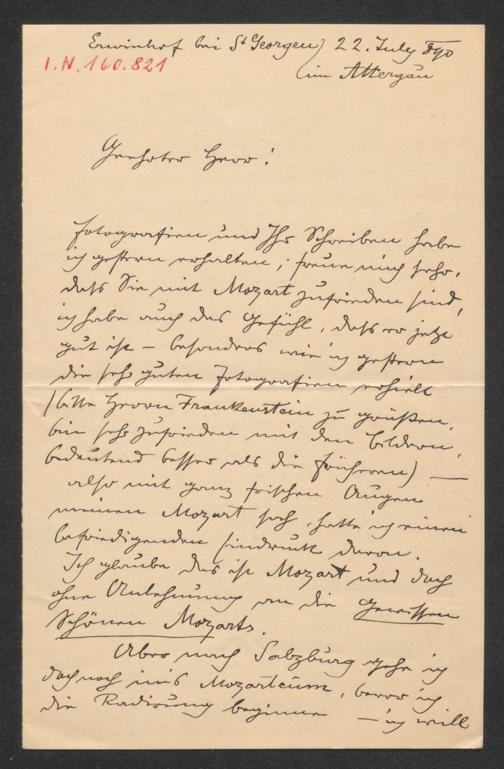 Erwinhof bei St Georgen) 22. July 890
I.N. 160.821
(im Attergau
Geehrter Herr!
Fotografien und Ihr Schreiben habe
ich gestern erhalten; freue mich sehr,
daß Sie mit Mozart zufrieden sind,
ich habe auch das Gefühl, daß er jetzt
gut ist – besonders wie ich gestern
die sehr guten Fotografien erhielt
(bitte Herrn Frankenstein zu grüßen,
bin sehr zufrieden mit den Bildern,
bedeutend besser als die früheren) —
also mit ganz frischen Augen
meinen Mozart sah, hatte ich einen
befriedigenden Eindruck davon.
Ich glaube das ist Mozart und doch
ohne Anlehnung an die gewissen
schönen Mozarts.
Aber nach Salzburg gehe ich
doch noch ins Mozarteum, bevor ich
die Radirung beginne – ich will